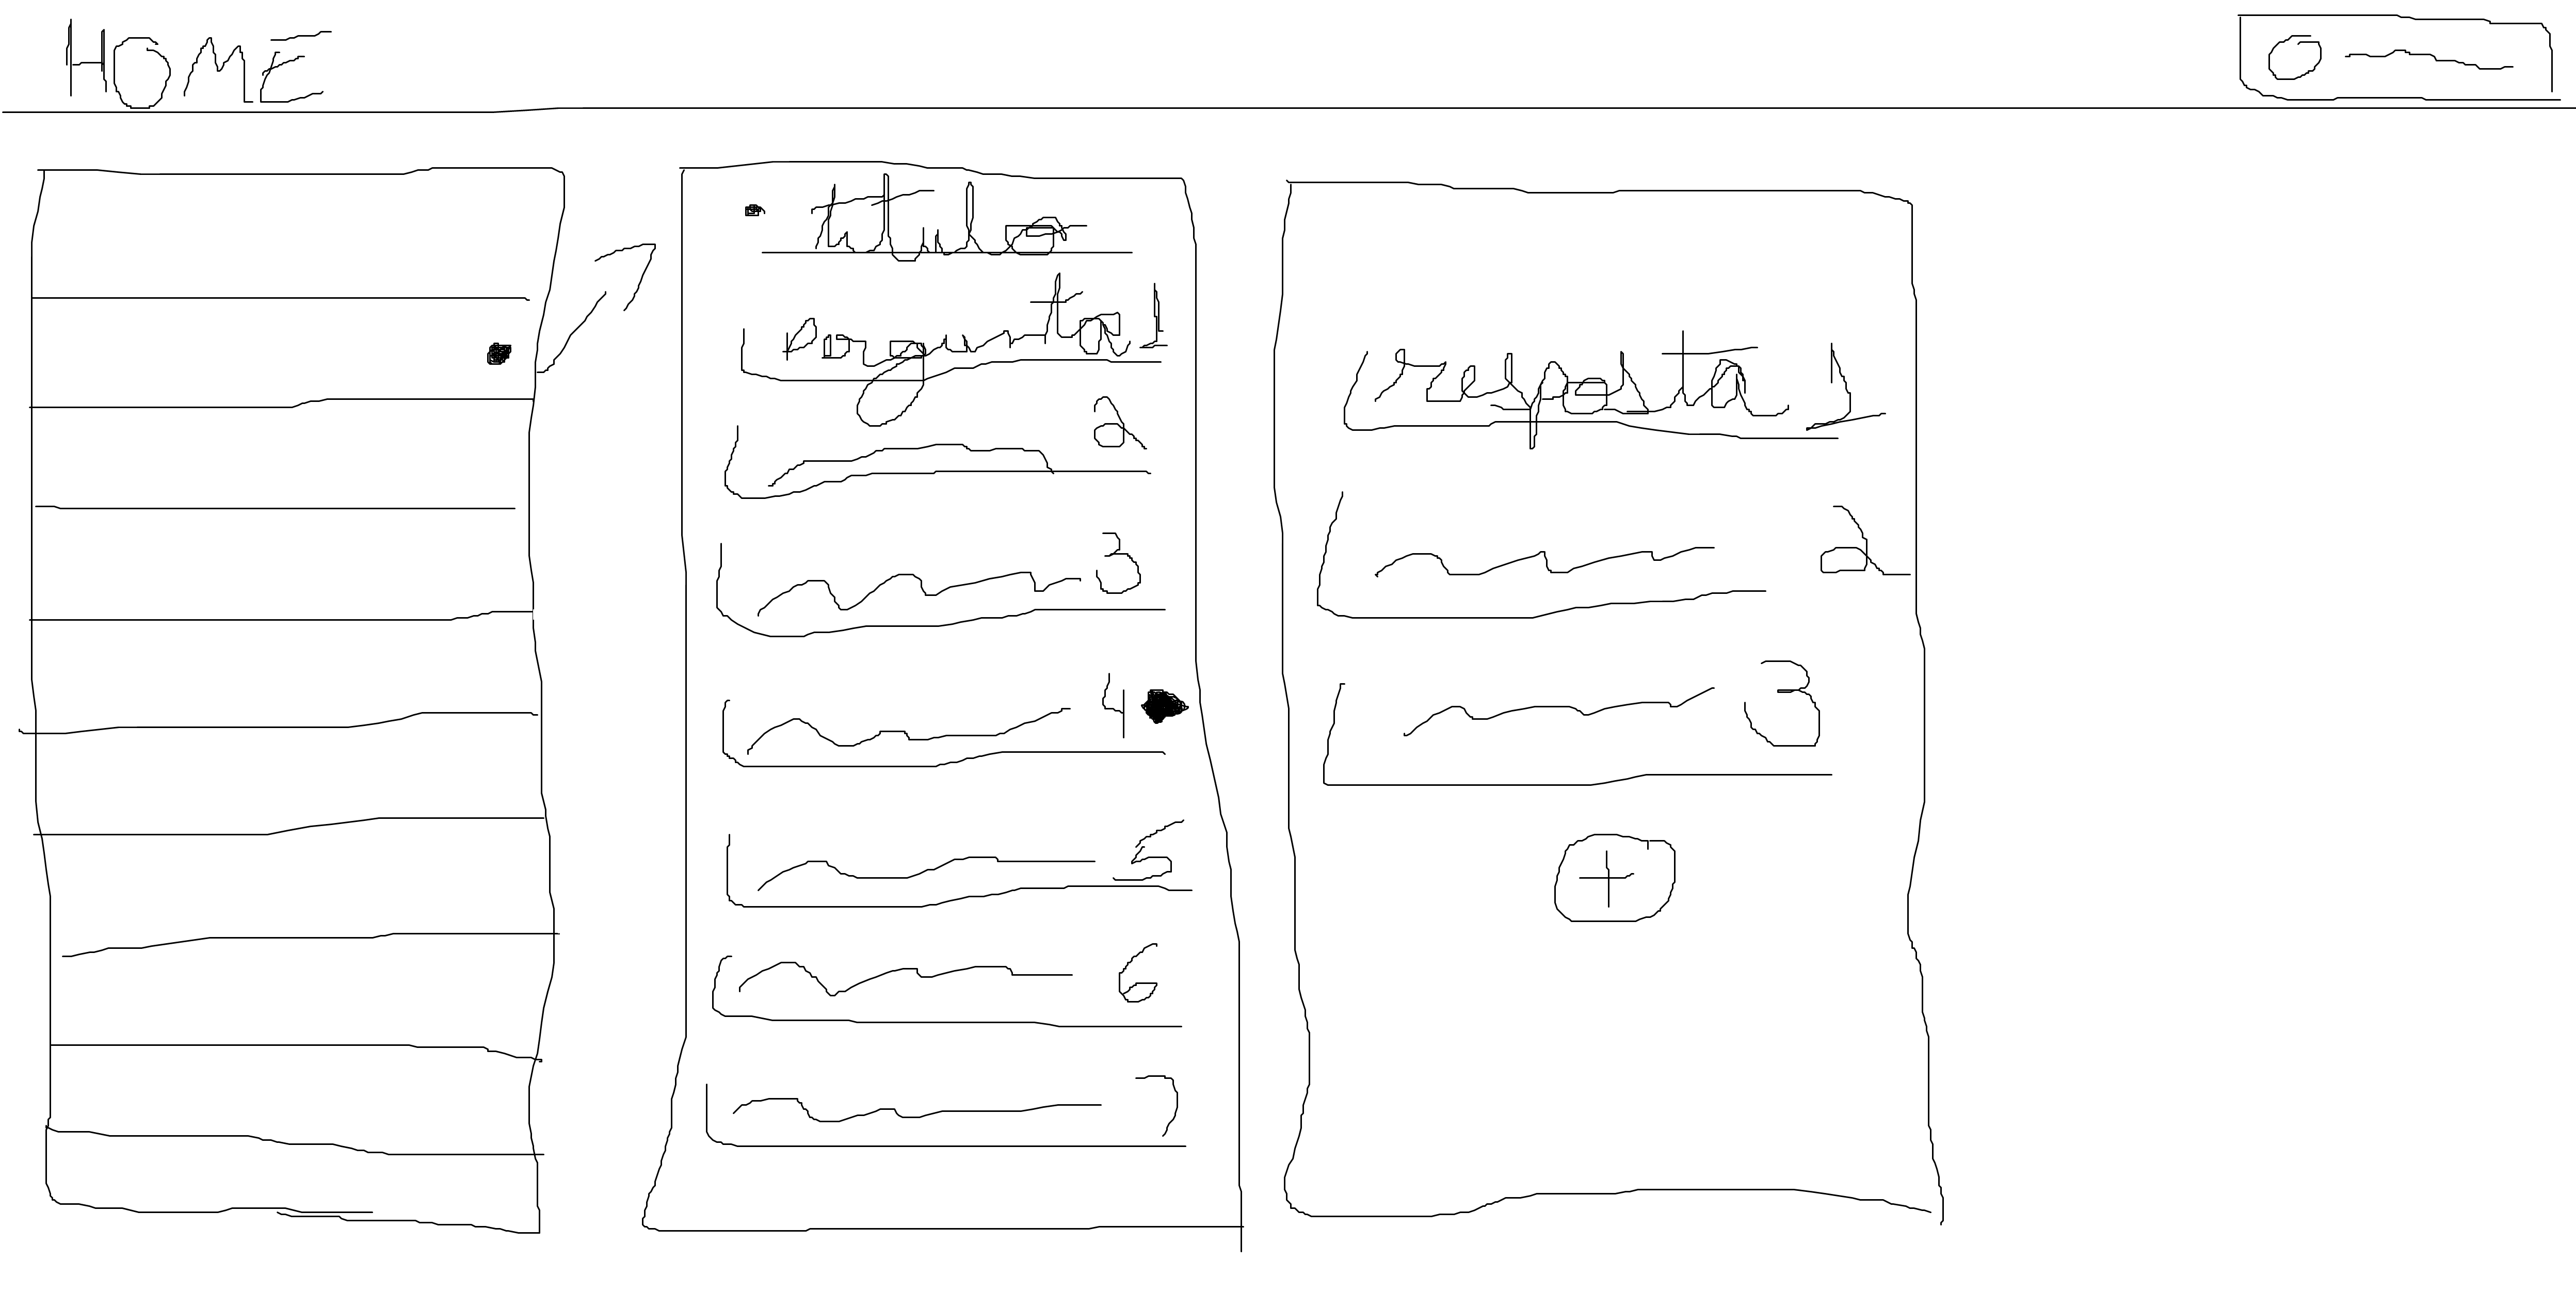 HOME
titulo
pergunta 1
2
3
4
5
6
7
resposta 1
2
3
+